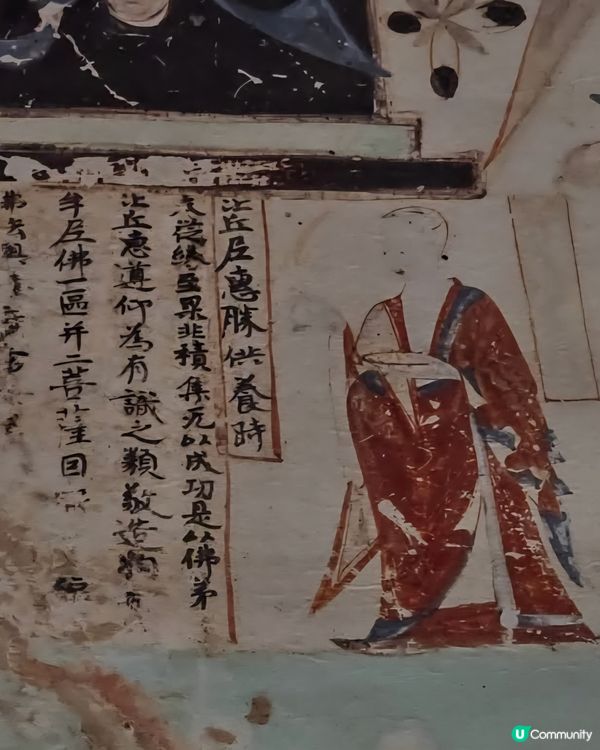 比丘尼惠勝供養時
夫從緣至果非積集无以成功是以佛弟
比丘惠遵仰為有識之類敬造拘
牟尼佛一區并二菩薩因
U Community